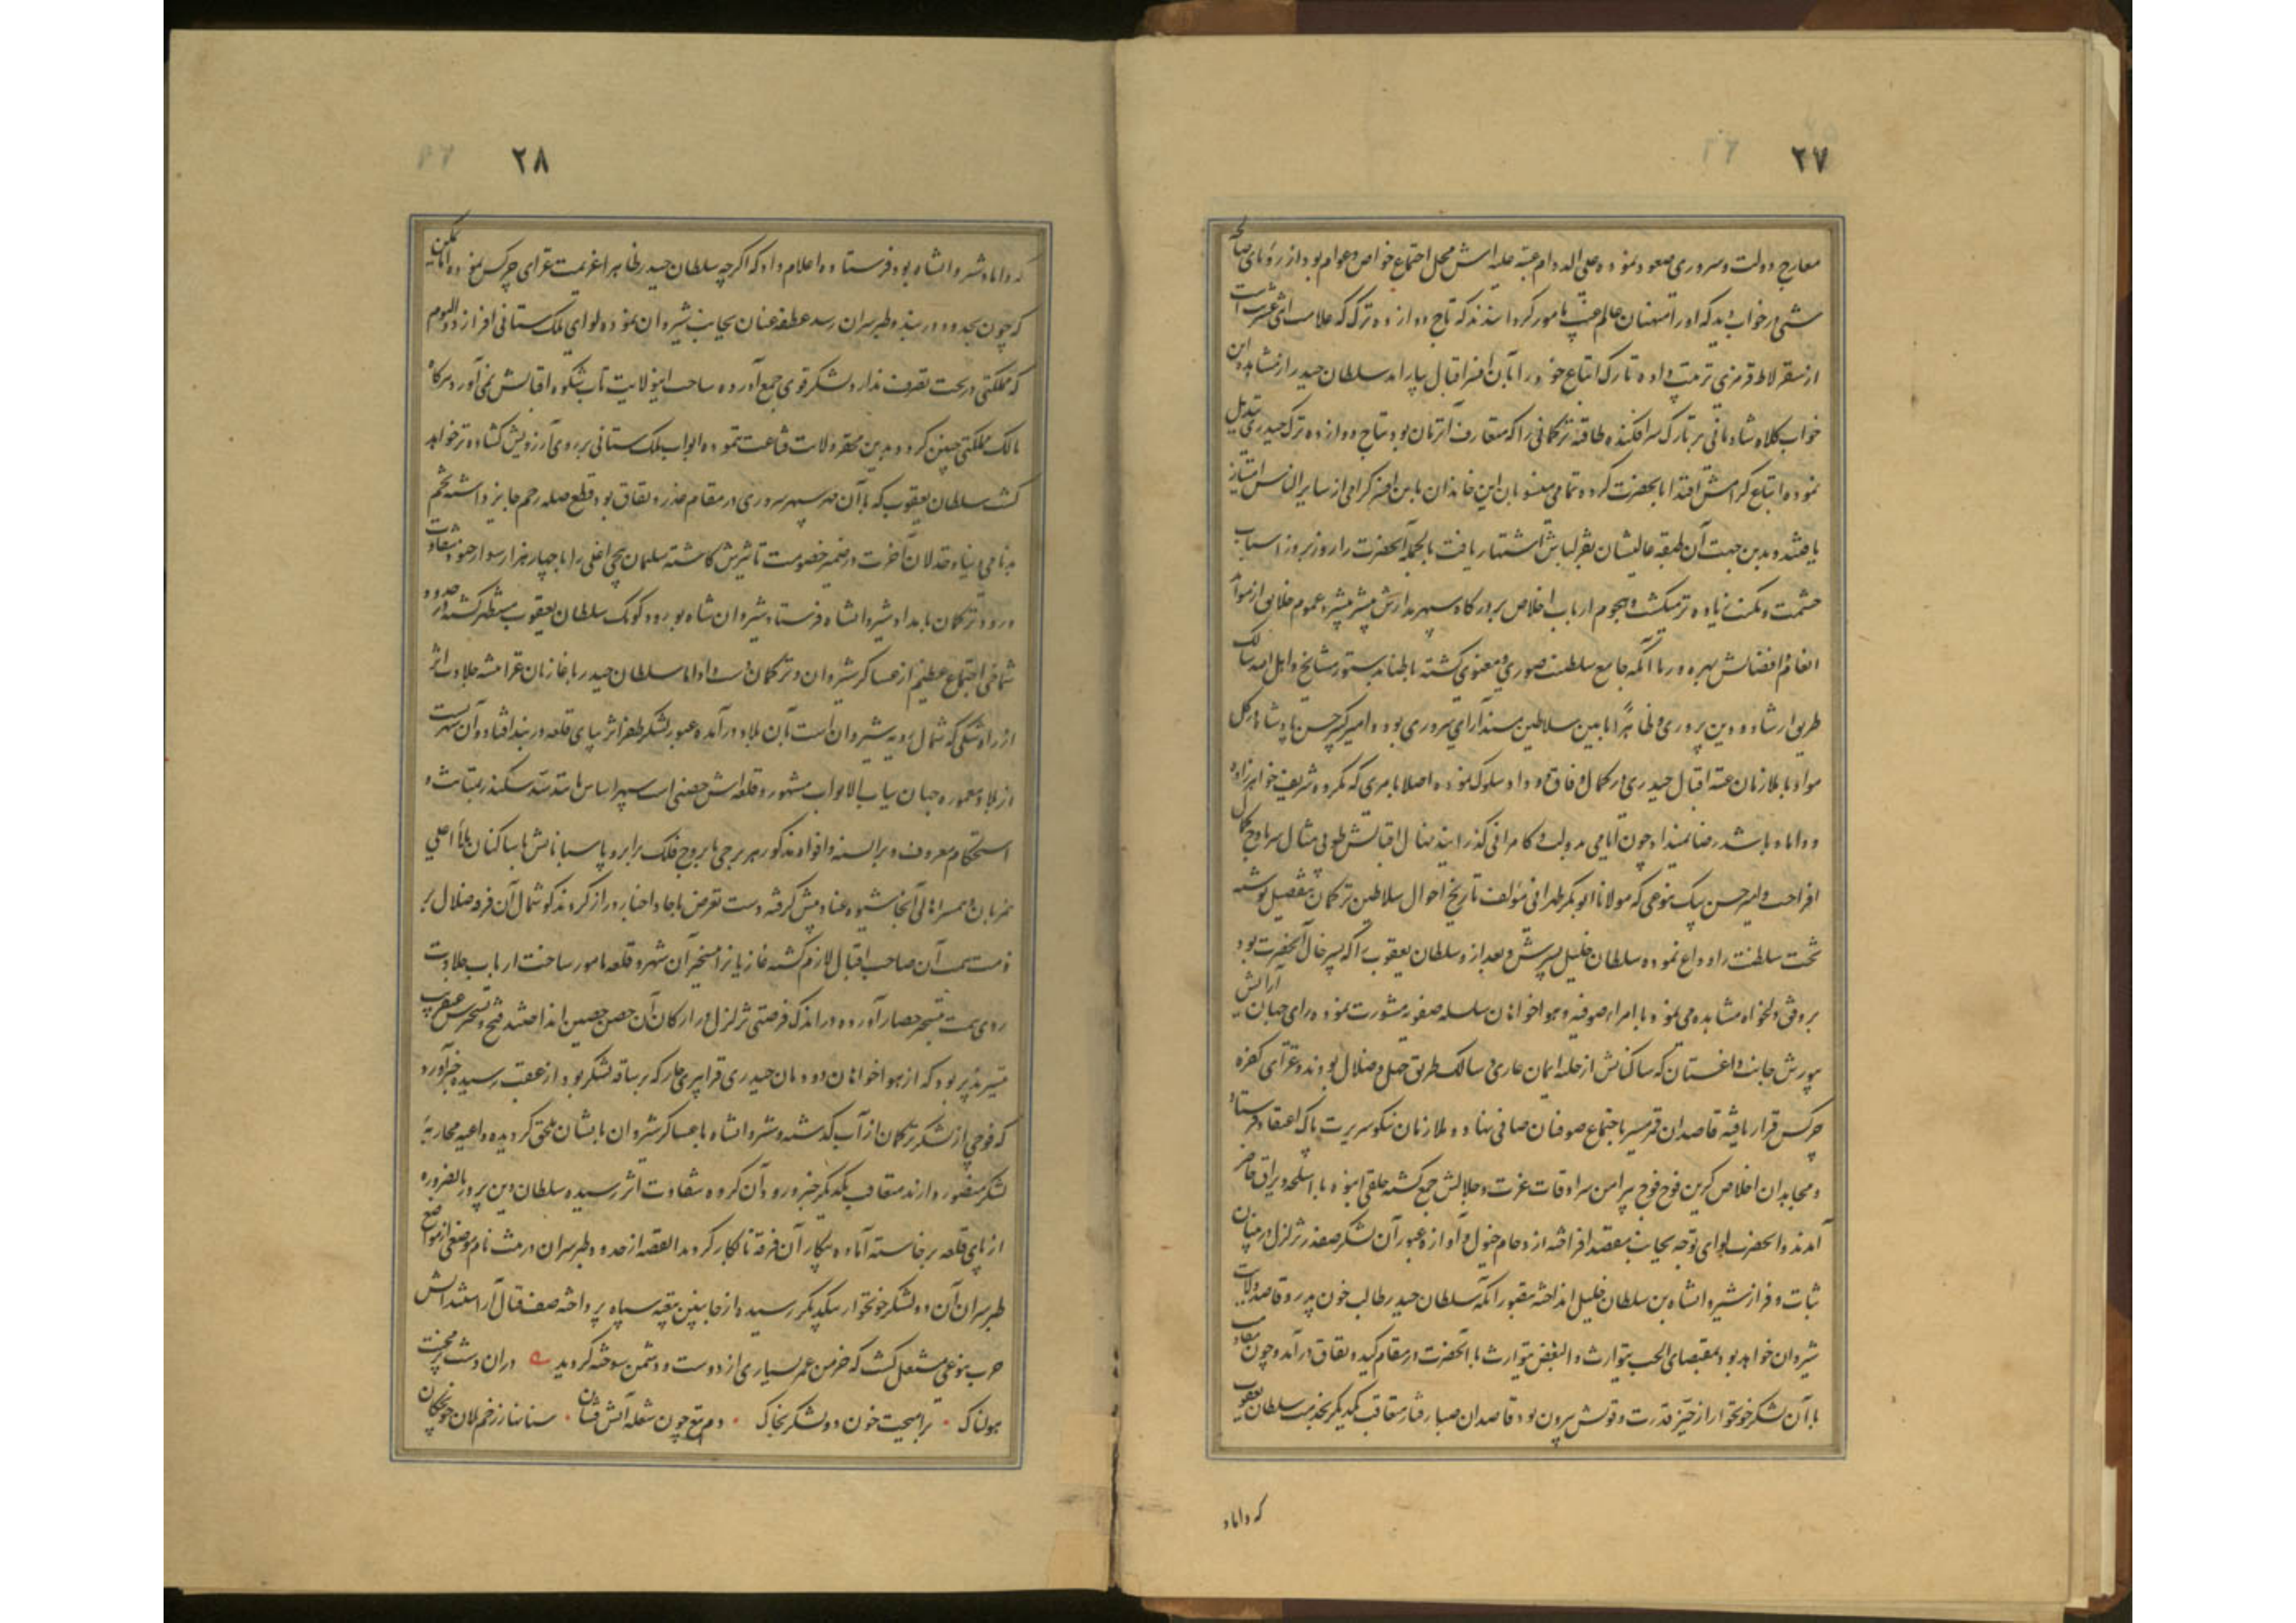 ۲۷
معارج دولت و سروری صعود نموده علی الدوام عتبه علیه اش محل اجتماع خواص و عوام بود از رؤیای صالحه
شبی در خواب دید که او را منهیان عالم غیب مامور گردانیدند که تاج دوازده ترک که علامت اثنی عشریت است
از سقرلاط قرمزی ترتیب داده تارک اتباع خود را بآن افسر اقبال بیاراید سلطان حیدر از مشاهده این
خواب کلاه شادمانی بر تارک سر افکنده طاقیه ترکمانی را که متعارف آن زمان بود بتاج دوازده ترک حیدری تبدیل
نموده اتباع کرامش اقتدا بآنحضرت کرده تمامی منسوبان این خاندان باین افسر گرامی از سایر الناس امتیاز
یافتند و بدین جهت آن طبقه عالیشان بقزلباش اشتهار یافت بالجمله آنحضرت را روز بروز اسباب
حشمت و مکنت زیاده تر میگشت و هجوم ارباب اخلاص بر درگاه سپهر مدارش بیشتر میشد و عموم خلایق از موائد
انعام و افضالش بهره ور تا آنکه جامع سلطنت صوری و معنوی گشته باطنا بدستور مشایخ و اهل الله سالک
طریق ارشاد و دین پروری و ظاهرا بآیین سلاطین مسند آرای سروری بود و امیر کبیر حسن پادشاه در کل
مواد با ملازمان عتبه اقبال حیدری در کمال وفاق و وداد سلوک نموده اصلا بامری که مکروه شریف خواهرزاده
و داماد باشد رضا نمیداد چون ایامی بدولت و کامرانی گذرانید نهال اقبالش طوبی مثال سر باوج کمال
افراخت و امیر حسن بیک بنوعی که مولانا ابوبکر طهرانی مؤلف تاریخ احوال سلاطین ترکمان بتفصیل نوشته
تخت سلطنت را وداع نموده سلطان خلیل پسرش و بعد از او سلطان یعقوب را که پسر خال آنحضرت بود
بر وفق دلخواه مشاهده می نمود با امراء صوفیه و هواخواهان سلسله صفویه مشورت نموده رای جهان آرایش
بیورش جانب داغستان که ساکنانش از حلیه ایمان عاری و سالک طریق جهل و ضلال بودند و غزای کفره
چرکس قرار یافته قاصدان قمر مسیر باجتماع صوفیان صافی نهاد و ملازمان نیکو سیرت پاک اعتقاد فرستاد
و مجاهدان اخلاص گزین فوج فوج پیرامن سرادقات عزت و جلالش جمع گشته خلقی انبوه با اسلحه و یراق حاضر
آمدند و آنحضرت لوای توجه بجانب مقصد افراخته از ازدحام خیول و آوازه عبور آن لشکر صفدر تزلزل در میان
ثبات و قرار شیروانشاه بن سلطان خلیل انداخته بتصور آنکه سلطان حیدر طالب خون پدر و قاصد ولایت
شیروان خواهد بود بمقتضای الحب یتوارث و البغض یتوارث با آنحضرت در مقام کید و نفاق درآمد و چون مقاومت
با آن لشکر خونخوار از حیز قدرت و قوتش بیرون بود قاصدان صبا رفتار متعاقب یکدیگر بخدمت سلطان یعقوب
که داماد
۲۸
که داماد شیروانشاه بود فرستاده اعلام داد که اگرچه سلطان حیدر ظاهرا عزیمت غزای چرکس نموده اما یمکن
که چون بحدود دربند و طبرسران رسد عطف عنان بجانب شیروان نموده لوای ملک ستانی افرازد و الیوم
که مملکتی در تحت تصرف ندارد لشکر قوی جمع آورده ساحت این ولایت تاب شکوه اقبالش نمی آورد هرگاه
مالک مملکتی چنین گردد بدین محقر ولایت قناعت ننموده ابواب ملک ستانی بر روی آرزویش گشاده تر خواهد
گشت سلطان یعقوب که با آن مهر سپهر سروری در مقام غدر و نفاق بود قطع صله رحم جایز داشته تخم
بدنامی دنیا و خذلان آخرت در ضمیر خصومت تاثیرش کاشته سلیمان بیجن اغلی را با چهار هزار سوار جنود شقاوت
ورود ترکمان بامداد شیروانشاه فرستاد شیروان شاه بورود کومک سلطان یعقوب مستظهر گشته در حدود
شماخی اجتماع عظیم از عساکر شیروان و ترکمان دست داد اما سلطان حیدر با غازیان غزا پیشه جلادت اثر
از راه شکی که شمال رویه شیروان است بآن بلاد درآمده عبور لشکر ظفر اثر بپای قلعه دربند افتاد و آن شهریست
از بلاد معموره جهان بباب الابواب مشهور و قلعه اش حصنی است سپهر اساس مانند سد سکندر بمتانت و
استحکام معروف و بر السنه و افواه مذکور هر برجی با بروج فلک برابر و پاسبانانش با ساکنان ملأ اعلی
همزبان و همسر اهالی آنجا شیوه عناد پیش گرفته دست تعرض بجا و اخبار دراز کردند گوشمال آن فرقه ضلال بر
ذمت همت آن صاحب اقبال لازم گشته غازیانرا بتسخیر آن شهر و قلعه مامور ساخت ارباب جلادت
روی همت بتسخیر حصار آورده در اندک فرصتی تزلزل در ارکان آن حصن حصین انداختند فتح و تسخیرش عنقریب
میسر پذیر بود که از هواخواهان دودمان حیدری قرا پیری قاجار که بر ساقه لشکر بود از عقب رسیده خبر آورد
که فوجی از لشکر ترکمان از آب گذشته و شیروانشاه با عساکر شیروان بایشان ملحق گردیده داعیه محاربه
لشکر منصور دارند متعاقب یکدیگر خبر ورود آن گروه شقاوت اثر رسیده سلطان دین پرور بالضروره
از پای قلعه برخاسته آماده پیکار آن فرقه نابکار گردید القصه از حدود طبرسران در مشت نام موضعی از مواضع
طبرسران آن دو لشکر خونخوار بیکدیگر رسیده از جانبین بتعبیه سپاه پرداخته صف قتال آراستند آتش
حرب بنوعی مشتعل گشت که خرمن عمر بسیاری از دوست و دشمن سوخته گردید دران دشت پر محنت
هولناک برآمیخت خون دو لشکر بخاک دم تیغ چون شعله آتش فشان سنانها ز زخم یلان خونچکان